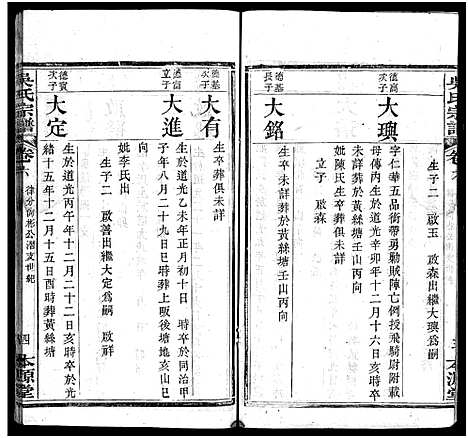 吳氏宗譜
卷六
本源堂
生子二 啟玉 啟森出繼大璵爲嗣
德高次子
大璵
字仁華五品銜帶勇勦賊陣亡例授飛騎尉附載
母傳內生於道光辛卯年十二月十六日亥時卒
葬未詳葬於黃絲塘壬山丙向
妣陳氏生卒葬於黃絲塘壬山丙向
立子 啟森
德基長子
大銘
生卒未詳
德基次子
大有
生卒葬俱未詳
德富立子
大進
生於道光乙未年正月初十日 時卒於同治甲
子年八月二十九日巳時葬上畈後塘地亥山巳
向
妣李氏出
生子二 啟善出繼大定爲嗣 啟祥
德寶次子
大定
生於道光丙午年十二月二十二日亥時卒於光
緒十五年十二月十五日酉時葬黃絲塘
吳氏宗譜
卷六
律分尙彬公溍支世紀
四
本源堂